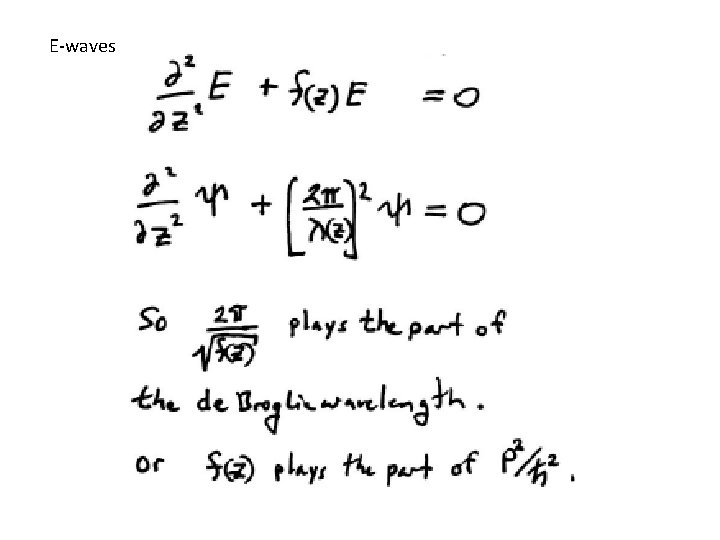 E-waves
∂²/∂z² E + f(z) E = 0
∂²/∂z² ψ + [2π/λ(z)]² ψ = 0
So 2π/√f(z) plays the part of
the de Broglie wavelength.
or f(z) plays the part of P²/ħ².